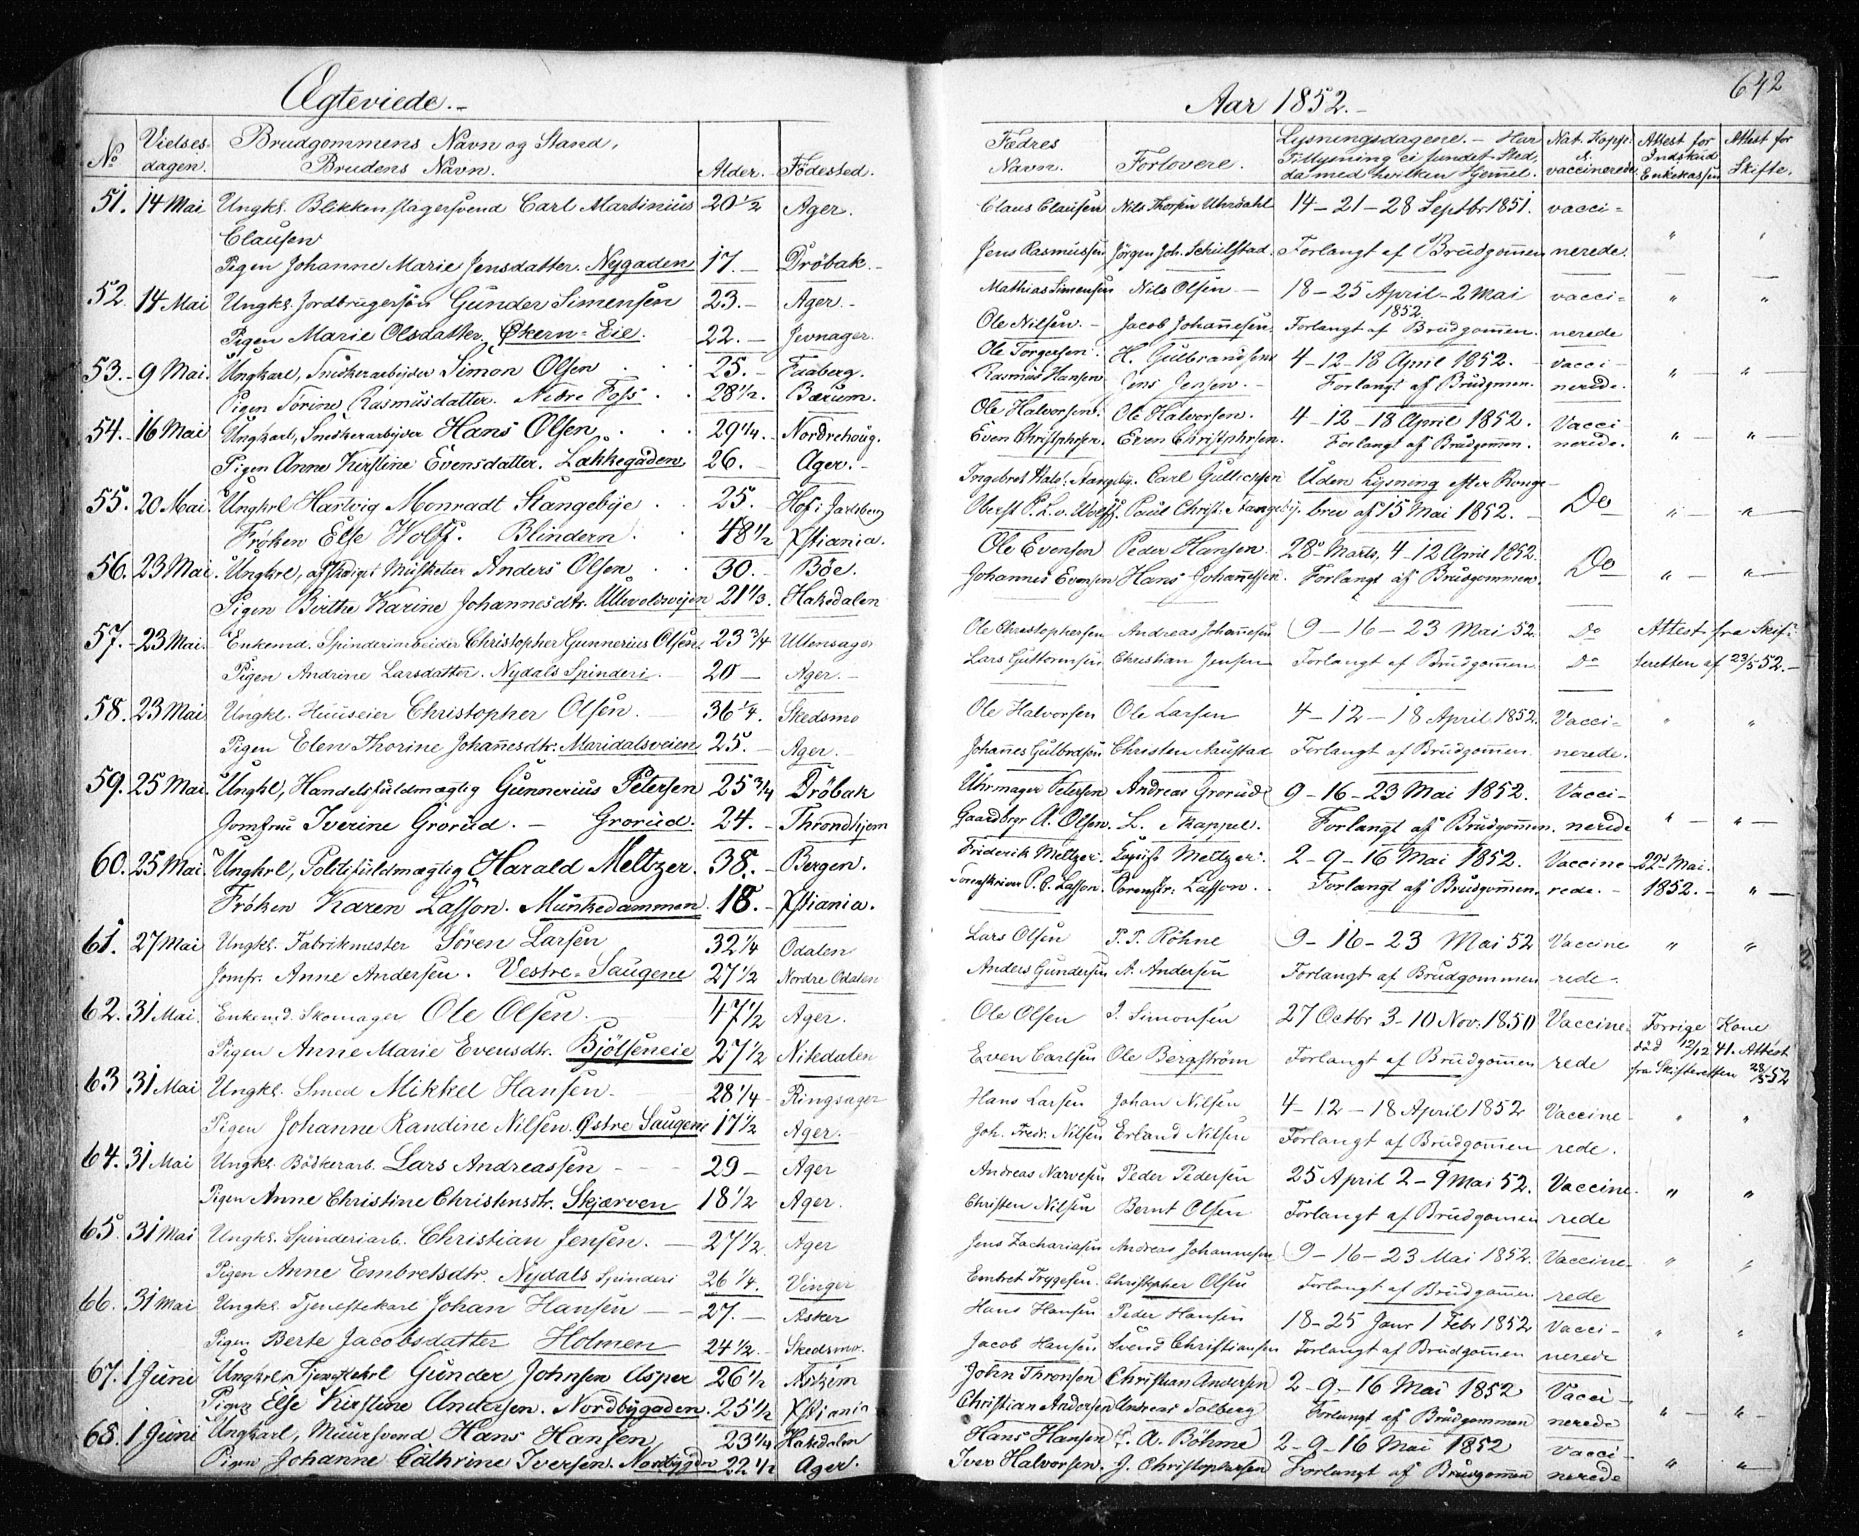 Ægteviede.-
No
Vielses-dagen.
Brudgommens Navn og Stand,
Brudens Navn.
Alder.
Födested.
51. 14 Mai Ungkl. Blikkenslagersvend Carl Martinius 20 1/2 Ager.
Clausen
Pigen Johanne Marie Jensdatter. Nygaden 17. Dröbak.
52. 14 Mai Ungkl. Jordbrugersön Gunder Simensen 23. Ager.
Pigen Marie Olsdatter. Økern-Eie. 22. Jevnager.
53. 9 Mai. Ungkarl, Snedkerarbejder Simon Olsen 25. Faaberg.
Pigen Torine Rasmusdatter. Nedre Foss 28 1/2. Bærum.
54. 16 Mai Ungkarl, Snedkerarbejder Hans Olsen 29 1/4. Nordrehoug.
Pigen Anne Kirstine Evensdatter. Lakkegaden 26. Ager.
55. 20 Mai. Ungkrl Hartvig Monradt Stangebye 25. Hof i Jarlsberg
Fröken Else Wolff. Blindern. 48 1/2 Xstiania.
56. 23 Mai. Ungkrl, afskediget Musketer Anders Olsen 30. Böe.
Pigen Birthe Karine Johannesdtr. Ullevoldsveien 21 1/3. Hakedalen
57. 23 Mai. Enkemd. Spinderiarbeider Christopher Gunnerius Olsen. 23 3/4 Ullensager
Pigen Andrine Larsdatter. Nydals Spinderi. 20 Ager.
58. 23 Mai Ungkl. Huuseier Christopher Olsen. 36 1/4. Skedsmo
Pigen Elen Thorine Johannesdtr. Maridalsveien 25. Ager.
59. 25 Mai. Ungkl, Handelsfuldmægtig Gunnerius Petersen 25 3/4 Dröbak
Jomfrue Iverine Grorud. - Grorud. 24. Throndhjem
60. 25 Mai. Ungkrl, Politifuldmægtig Harald Meltzer. 38. Bergen.
Fröken Karen Lasson. Munkedammen. 18. Xstiania.
61. 27 Mai Ungkl. Fabrikmester Sören Larsen 32 1/4 Odalen
Jomfr. Anne Andersen. Vestre-Saugene 27 1/2 Nordre Odalen
62. 31 Mai. Enkemd. Skomager Ole Olsen. 47 1/2 Ager.
Pigen Anne Marie Evensdtr. Bjölseneie 27 1/2 Nitedalen
63 31 Mai Ungkl. Smed Mikkel Hansen. 28 1/4 Ringsager
Pigen Johanne Randine Nilsen. Østre Saugene 17 1/2 Ager.
64. 31 Mai Ungkl. Bödkerarb. Lars Andreassen 29 Ager
Pigen Anne Christine Christensdtr. Skjærven 18 1/2 Ager.
65. 31 Mai Ungkl. Spinderiarb. Christian Jensen. 27 1/2. Ager
Pigen Anne Embretsdtr. Nydals Spinderi 26 1/4. Vinger
66. 31 Mai Ungkl. Tjenestekarl Johan Hansen 27. Asker
Pigen Berte Jacobsdatter Holmen 24 1/2. Skedsmo.
67. 1 Juni Ungkrl, Tjenestekrl Gunder Johnsen Asper 26 1/2
Pigen Else Kirstine Andersen. Nordbygaden. 25 1/2 Xstiania
68. 1 Juni Ungkarl, Muursvend Hans Hansen 23 1/4 Hakedalen
Pigen Johanne Cathrine Iversen. Nordbygden 22 1/2 Ager.
Aar 1852.-
642
Fædres Navn.
Forlovere.
Lysningsdagene. - Har Tillysning ei fundet Sted, da med hvilken Hjemmel.
Nat. Kopp. el. vaccinerede
Attest for Indskud Enkekassen
Attest for Skifte.
Claus Clausen Nils Thorsen Uhrdahl 14-21-28 Septbr 1851. vacci=
Jens Rasmussen Jörgen Joh. Schulstad. Forlangt af Brudgommen nerede.
Mathias Simensen Nils Olsen 18-25 April-2 Mai 1852. vacci=
Ole Nilsen. Jacob Johannesen. Forlangt af Brudgommen. nerede
Ole Torgersen. H. Gulbrandsen 4-12-18 April 1852. vacci-
Rasmus Hansen Jens Jensen. Forlangt af Brudgmen. nerede.
Ole Halvorsen. Ole Halvorsen. 4-12-18 April 1852. Vacci
Even Christphrsen. Even Christphrsen. Forlangt af Brudgommen. nerede.
Carl Gulliksen Uden Lysning efter Konge-
brev af 15 Mai 1852. Do
Ole Evensen Peder Hansen. 28 Marts, 4-12 April 1852.
Johannes Evensen Hans Johannessen. Forlangt af Brudgommen. Do
Ole Christophersen Andreas Johannesen 9-16-23 Mai 52. Do Attest fra Skif-
Lars Guttormsen Christian Jensen Forlangt af Brudgommen Do teretten af 23/5 52.
Ole Halvorsen Ole Larsen 4-12-18 April 1852. Vacci-
Johannes Gulbrdsen Christen Naustad Forlangt af Brudgommen. nerede.
Uhrmager Petersen Andreas Grorud 9-16-23 Mai 1852. Vacci-
Gaardbrgr A. Olsen. L. Skappel. Forlangt af Brudgommen. nerede
Friderik Meltzer. Meltzer. 2-9-16 Mai 1852. Vaccine- 22d Mai.
Sorenskriver P. C. Lasson. Lasson. Forlangt af Brudgommen. rede. 1852.
Lars Olsen P. P. Röhne 9-16-23 Mai 52 Vaccine
Anders Gundersen A. Andersen Forlangt af Brudgommen rede.
Ole Olsen I. Simonsen 27 Octbr 3-10 Nov. 1850 Vaccine- Forrige Kone
Even Carlsen Ole Bergström Forlangt af Brudgommen rede död 12/12 41. Attest
fra Skifteretten 28/5 52
Hans Larsen Johan Nilsen 4-12-18 April 1852 Vaccine-
Joh. Fredr. Nilsen Erland Nilsen Forlangt af Brudgommen rede.
Andreas Narvesen Peder Pedersen 25 April 2-9 Mai 52. Vaccine-
Christen Nilsen Bernt Olsen Forlangt af Brudgommen rede
Jens Zachariasen Andreas Johannesen 9-16-23 Mai 1852. Vaccine-
Embret Tryggesen. Christopher Olsen Forlangt af Brudgommen. rede
Hans Hansen Peder Hansen 18-25 Janr 1 Febr 1852 Vacci-
Jacob Hansen Svend Christiansen Forlangt af Brudgommen nerede
John Thronsen Christian Andersen 2-9-16 Mai 1852 Vacci-
Christian Andersen Andreas Solberg Forlangt af Brudgommen nerede
Hans Hansen A. Böhme 2-9-16 Mai 1852 vacci-
Iver Halvorsen. J. Christophersen Forlangt af Brudgommen nerede